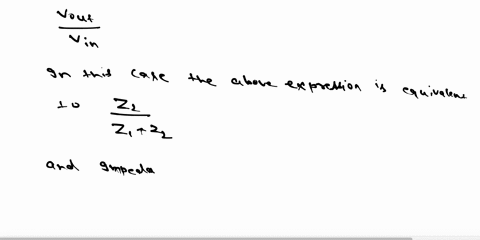 Vout
Vin
In this case the above expression is equivalene
to Z2
Z1 + Z2
and Impeda